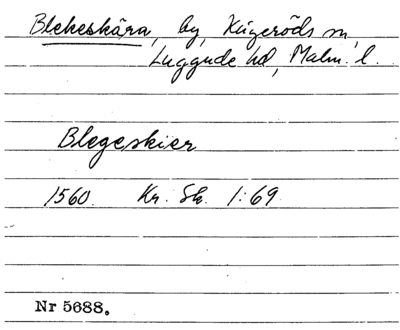 Blekeskära, by, Kågeröds sn,
Luggude hd, Malm. l.
Blegeskier
1560. Kr. Sk. 1:69.
Nr 5688.